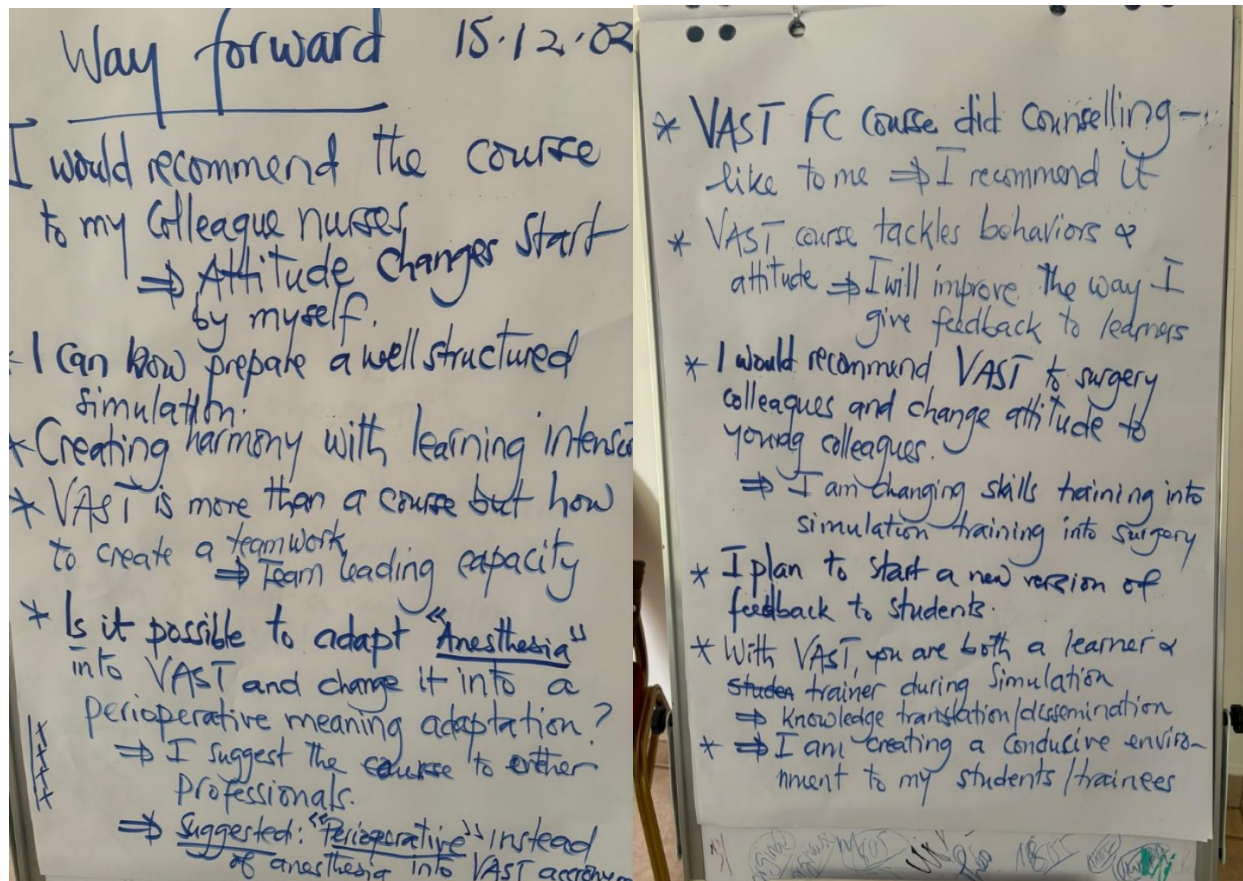 Way forward 15.12.02
I would recommend the course
to my Colleague nurses
⇒ Attitude changes Start
by myself.
- I can now prepare a well structured
simulation.
* Creating harmony with learning intensi
* VAST is more than a course but how
to create a teamwork
⇒ Team leading capacity
* Is it possible to adapt "Anesthesia"
into VAST and change it into a
perioperative meaning adaptation?
⇒ I suggest the course to other
professionals.
⇒ Suggested: "Perioperative" instead
of anesthesia into VAST accronym
* VAST FC course did counselling -
like to me ⇒ I recommend it
* VAST course tackles behaviors &
attitude ⇒ I will improve the way I
give feedback to learners
* I would recommend VAST to surgery
colleagues and change attitude to
young colleagues.
⇒ I am changing skills training into
simulation training into surgery
* I plan to start a new version of
feedback to students.
* With VAST, you are both a learner &
studen trainer during simulation
⇒ Knowledge translation/dissemination
* ⇒ I am creating a conducive enviro-
nment to my students/trainees